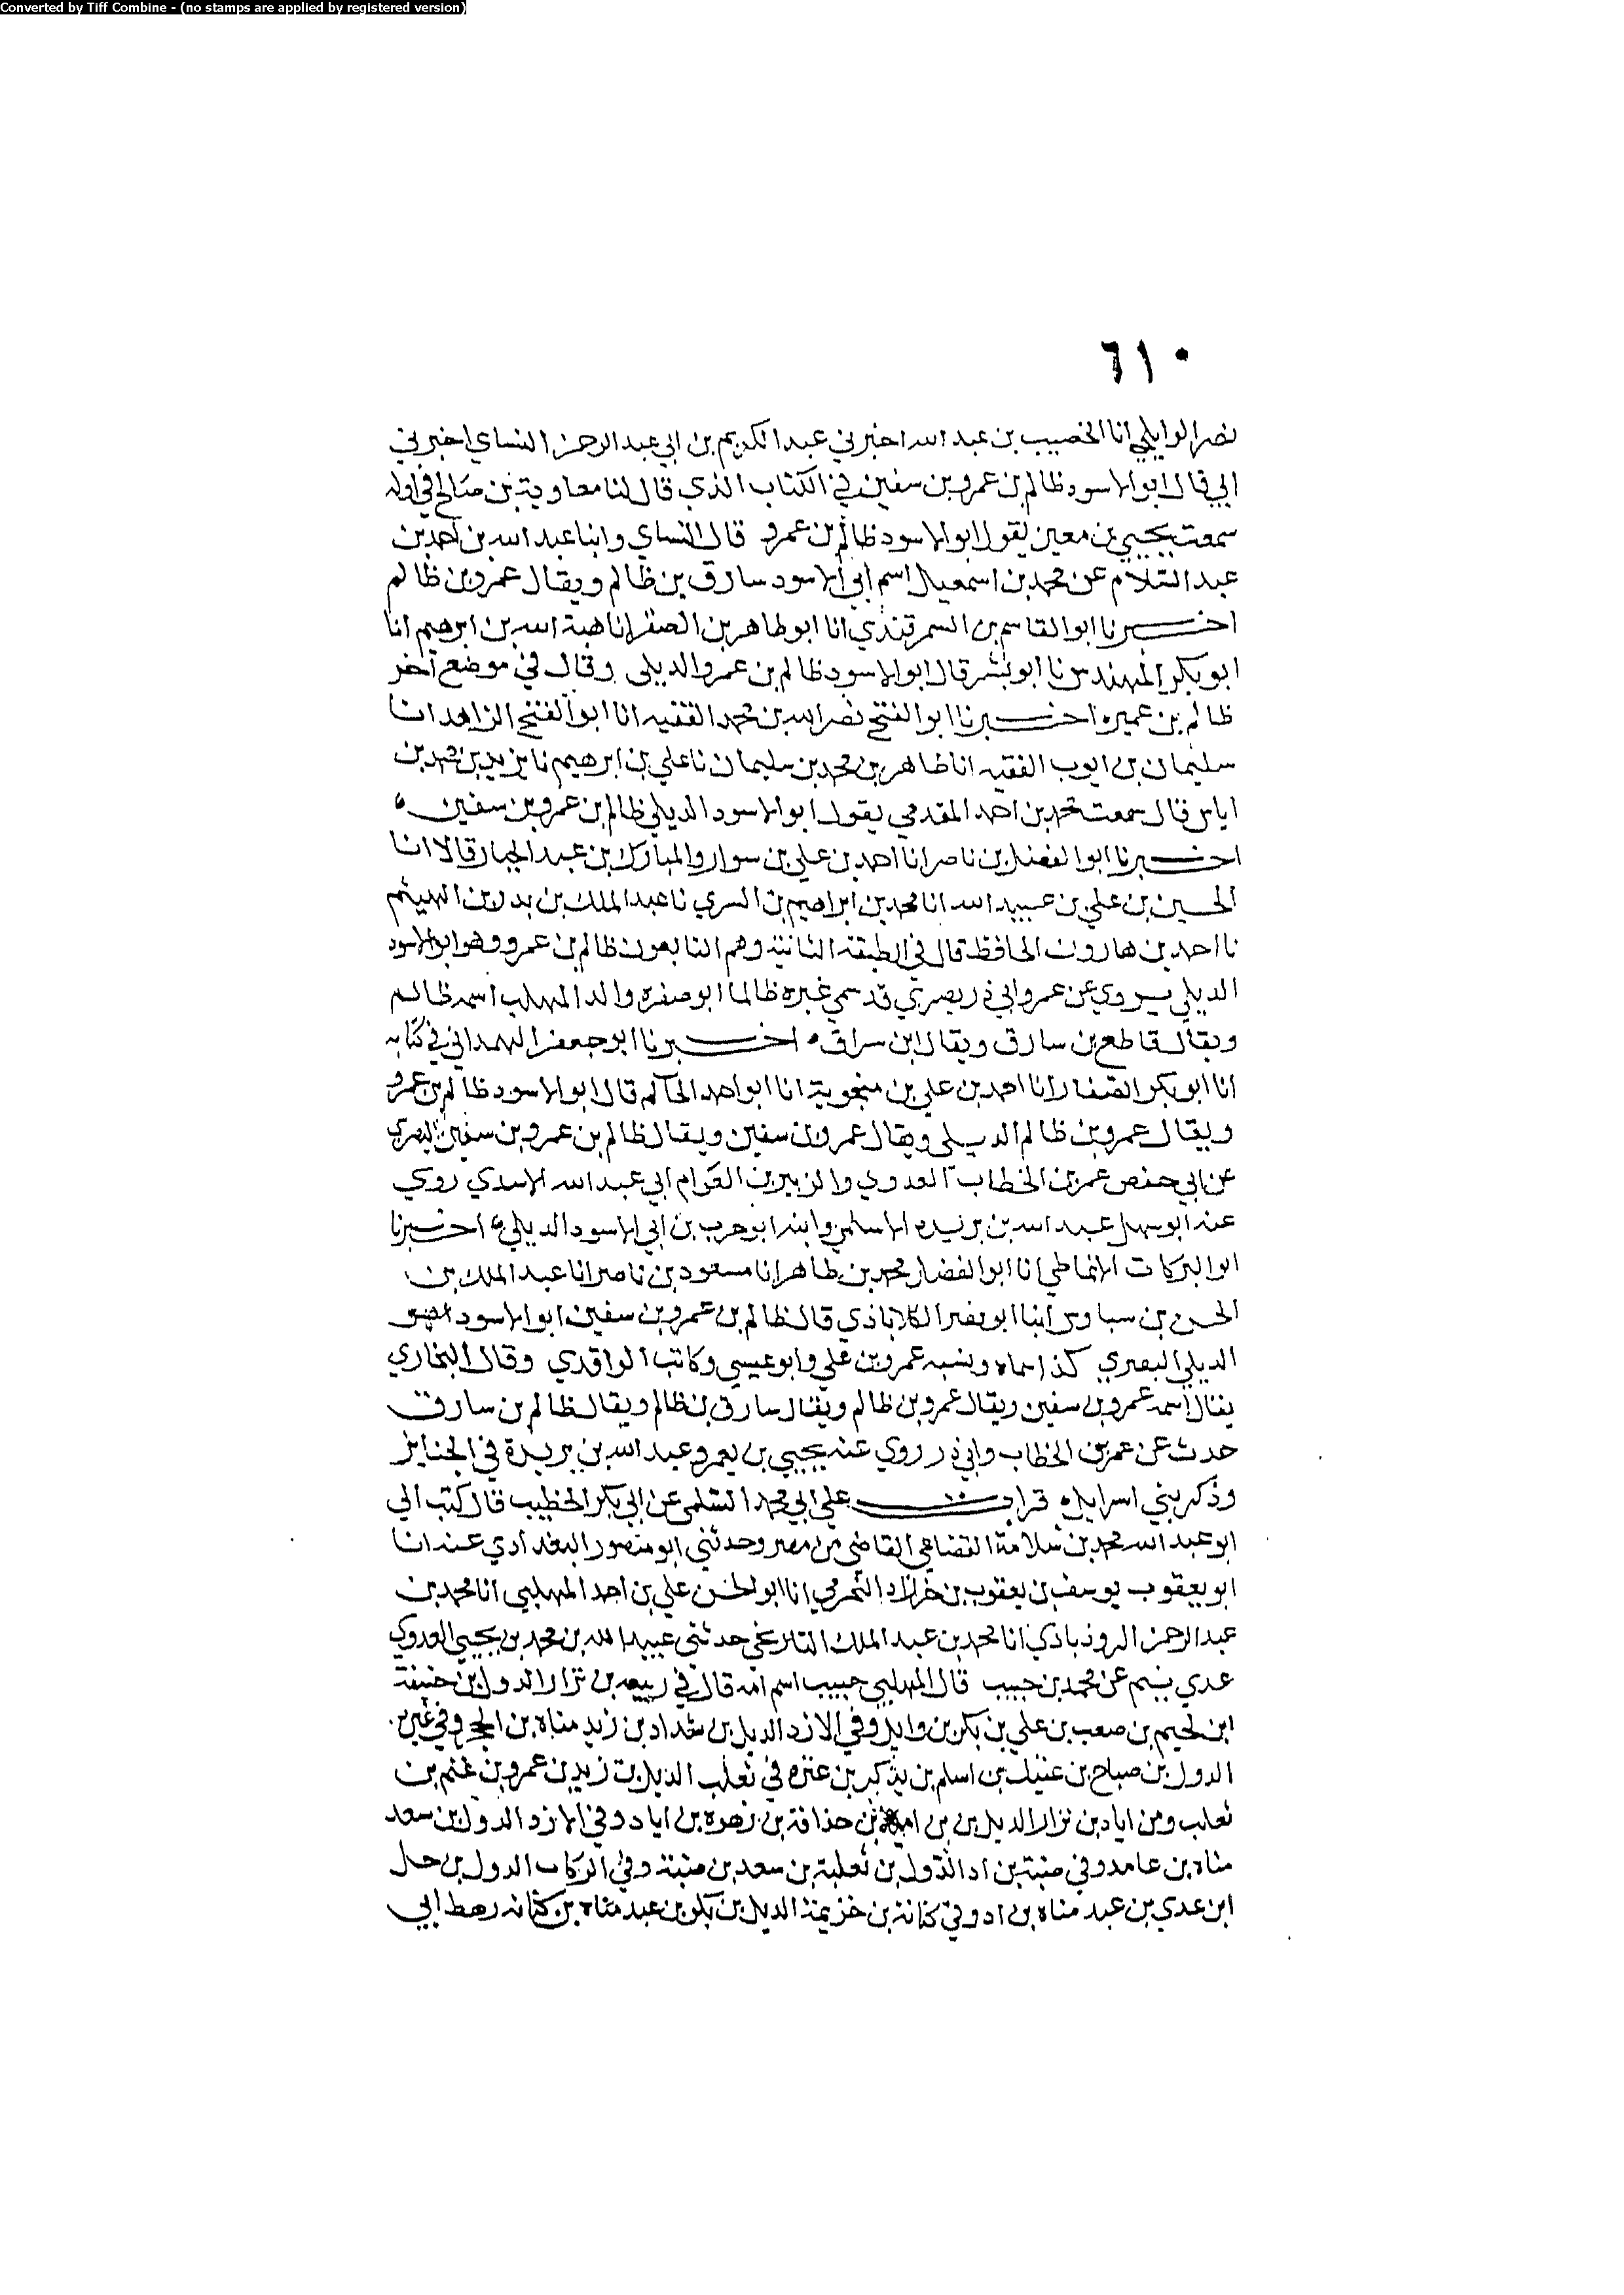 Converted by Tiff Combine - (no stamps are applied by registered version)
٦١٠
نصر الوايلي انا الخصيب بن عبد الله اخبرني عبد الكريم بن ابي عبد الرحمن النساي اخبرني
ابي قال ابو الاسود ظالم بن عمرو بن سفين في الكتاب الذي قال لنا معاوية بن صالح في اوله
سمعت يحيي بن معين يقول ابو الاسود ظالم بن عمرو قال النساي وابنا عبد الله بن احمد بن
عبد السلام عن محمد بن اسمعيل اسم ابي الاسود سارق بن ظالم ويقال عمرو بن ظالم
اخبرنا ابو القاسم بن السمرقندي انا ابو طاهر بن الصقر انا هبة الله بن ابرهيم انا
ابو بكر المهندس نا ابو بشر قال ابو الاسود ظالم بن عمرو الديلي وقال في موضع آخر
ظالم بن عميره اخبرنا ابو الفتح نصر الله بن محمد الفقيه انا ابو الفتح الزاهد انا
سليمان بن ايوب الفقيه انا طاهر بن محمد بن سليمان نا علي بن ابرهيم نا يزيد بن محمد بن
اياس قال سمعت محمد بن احمد المقدمي يقول ابو الاسود الديلي ظالم بن عمرو بن سفين ه
اخبرنا ابو الفضل بن ناصر انا احمد بن علي بن سوار والمبارك بن عبد الجبار قالا انا
الحسين بن علي بن عبيد الله انا محمد بن ابراهيم بن السري نا عبد الملك بن بدر بن الهيثم
نا احمد بن هارون الحافظ قال في الطبقة الثانية وهم التابعون ظالم بن عمرو وهو ابو الاسود
الديلي يروي عن عمر وابي ذر بصري قد سمي غيره ظالما ابو صفره والد المهلب اسمه ظالم
ويقال قاطع بن سارق ويقال ابن سراق ٥ اخبرنا ابو جعفر الهمداني في كتابه
انا ابو بكر الصفار انا احمد بن علي بن منجوية انا ابو احمد الحاكم قال ابو الاسود ظالم بن عمرو
ويقال عمرو بن ظالم الديلي ويقال عمرو بن سفين ويقال ظالم بن عمرو بن سفين البصري
عن ابي حفص عمر بن الخطاب العدوي والزبير بن العوام ابي عبد الله الاسدي روي
عنه ابو سهل عبد الله بن بريده الاسلمي وابنه ابو حرب بن ابي الاسود الديلي ه اخبرنا
ابو البركات الانماطي انا ابو الفضل محمد بن طاهر انا مسعود بن ناصر انا عبد الملك بن
الحسن بن سياوس ابنا ابو نصر الكلاباذي قال ظالم بن عمرو بن سفين ابو الاسود
الديلي البصري كذا سماه ونسبه عمرو بن علي وابو عيسي وكاتب الواقدي وقال البخاري
يقال اسمه عمرو بن سفين ويقال عمرو بن ظالم ويقال سارق بن ظالم ويقال ظالم بن سارق
حدث عن عمر بن الخطاب وابي ذر روي عنه يحيي بن يعمر وعبد الله بن بريدة في الجنايز
وذكر بني اسرايل ه قرات علي ابي محمد السلمي عن ابي بكر الخطيب قال كتب الي
ابو عبد الله محمد بن سلامة القضاعي القاضي من مصر وحدثني ابو منصور البغدادي عنه انا
ابو يعقوب يوسف بن يعقوب بن خرزاد النجرمي انا ابو الحسن علي بن احمد المهلبي انا محمد بن
عبد الرحمن الروذبادي انا محمد بن عبد الملك التاريخي حدثني عبيد الله بن محمد بن يحيي العدوي
عدي بنيم عن محمد بن حبيب قال المهلبي حبيب اسم امه قال في ربيعه بن نزار الدول بن حنيفة
ابن لجيم بن صعب بن علي بن بكر بن وايل وفي الازد الديل بن شداد بن زيد مناه بن الحجر وفي عنزه
الدول بن صباح بن عتيك بن اسلم بن يذكر بن عنزه في تغلب الديل بن زيد بن عمرو بن غنم بن
تغلب ومن اياد بن نزار الديل بن بن اميه بن حذافة بن زهره بن اياد وفي الازد الدول بن سعد
مناه بن غامد وفي ضبة بن اد الدول بن ثعلبة بن سعد بن ضبة وفي الركاب الدول بن حل
ابن عدي بن عبد مناه بن اد وفي كنانة بن خزيمة الديل بن بكر بن عبد مناه بن كنانه رهط ابي